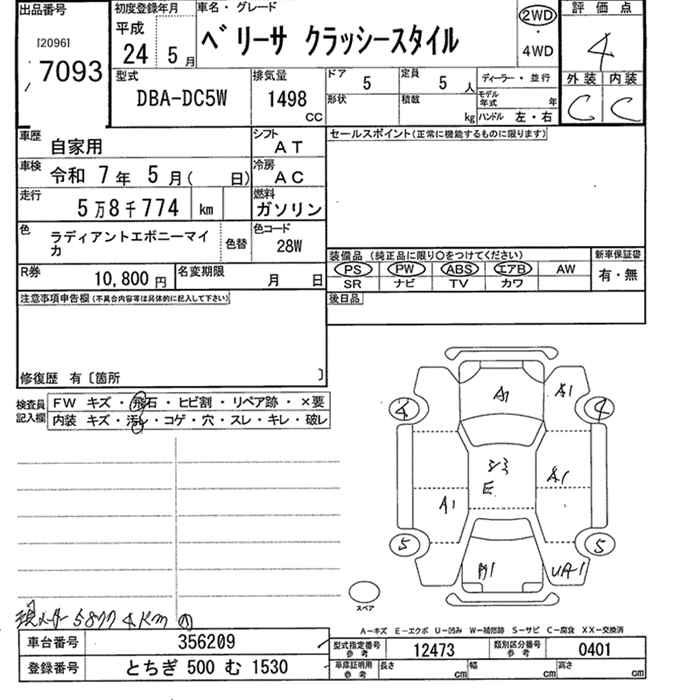 出品番号
[2096]
7093
初度登録年月
平成
24 5月
車名・グレード
ベリーサ クラッシースタイル
2WD
・
4WD
評価点
4
外装 内装
C C
型式
DBA-DC5W
排気量
1498
CC
ドア 5
定員 5 人
形状
積載 kg
ディーラー・並行
モデル年式 年
ハンドル 左・右
車歴
自家用
シフト
AT
車検
令和 7年 5月( 日)
冷房
AC
走行
5万8千774 km
燃料
ガソリン
色
ラディアントエボニーマイカ
色替
色コード
28W
R券
10,800円
名変期限
月 日
セールスポイント(正常に機能するものに限ります)
装備品 (純正品に限り○をつけてください)
PS PW ABS エアB AW
SR ナビ TV カワ
新車保証書
有・無
後日品
注意事項申告欄(不具合内容等は具体的に記入して下さい)
修復歴 有〔箇所 〕
検査員記入欄
FW キズ・飛石・ヒビ割・リペア跡・×要
内装 キズ・汚れ・コゲ・穴・スレ・キレ・破レ
A1
A1
4
4
E
A1
A1
5
5
A1
UA1
スペア
A-キズ E-エクボ U-凹み W-補修跡 S-サビ C-腐食 XX-交換済
車台番号
356209
登録番号
とちぎ 500 む 1530
型式指定番号
参考
12473
類別区分番号
参考
0401
車庫証明用
参考
長さ cm
幅 cm
高さ cm